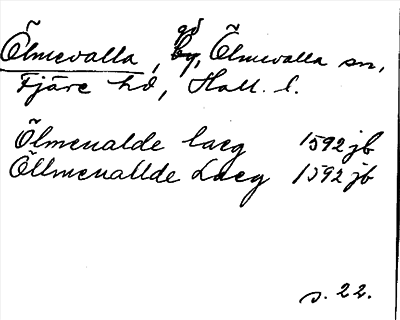 Ölmevalla, gd By, Ölmevalla sn,
Fjäre hd, Hall. l.
Ölmeualde laeg 1592 jb
Öllmeuallde Laeg 1592 jb
s. 22.